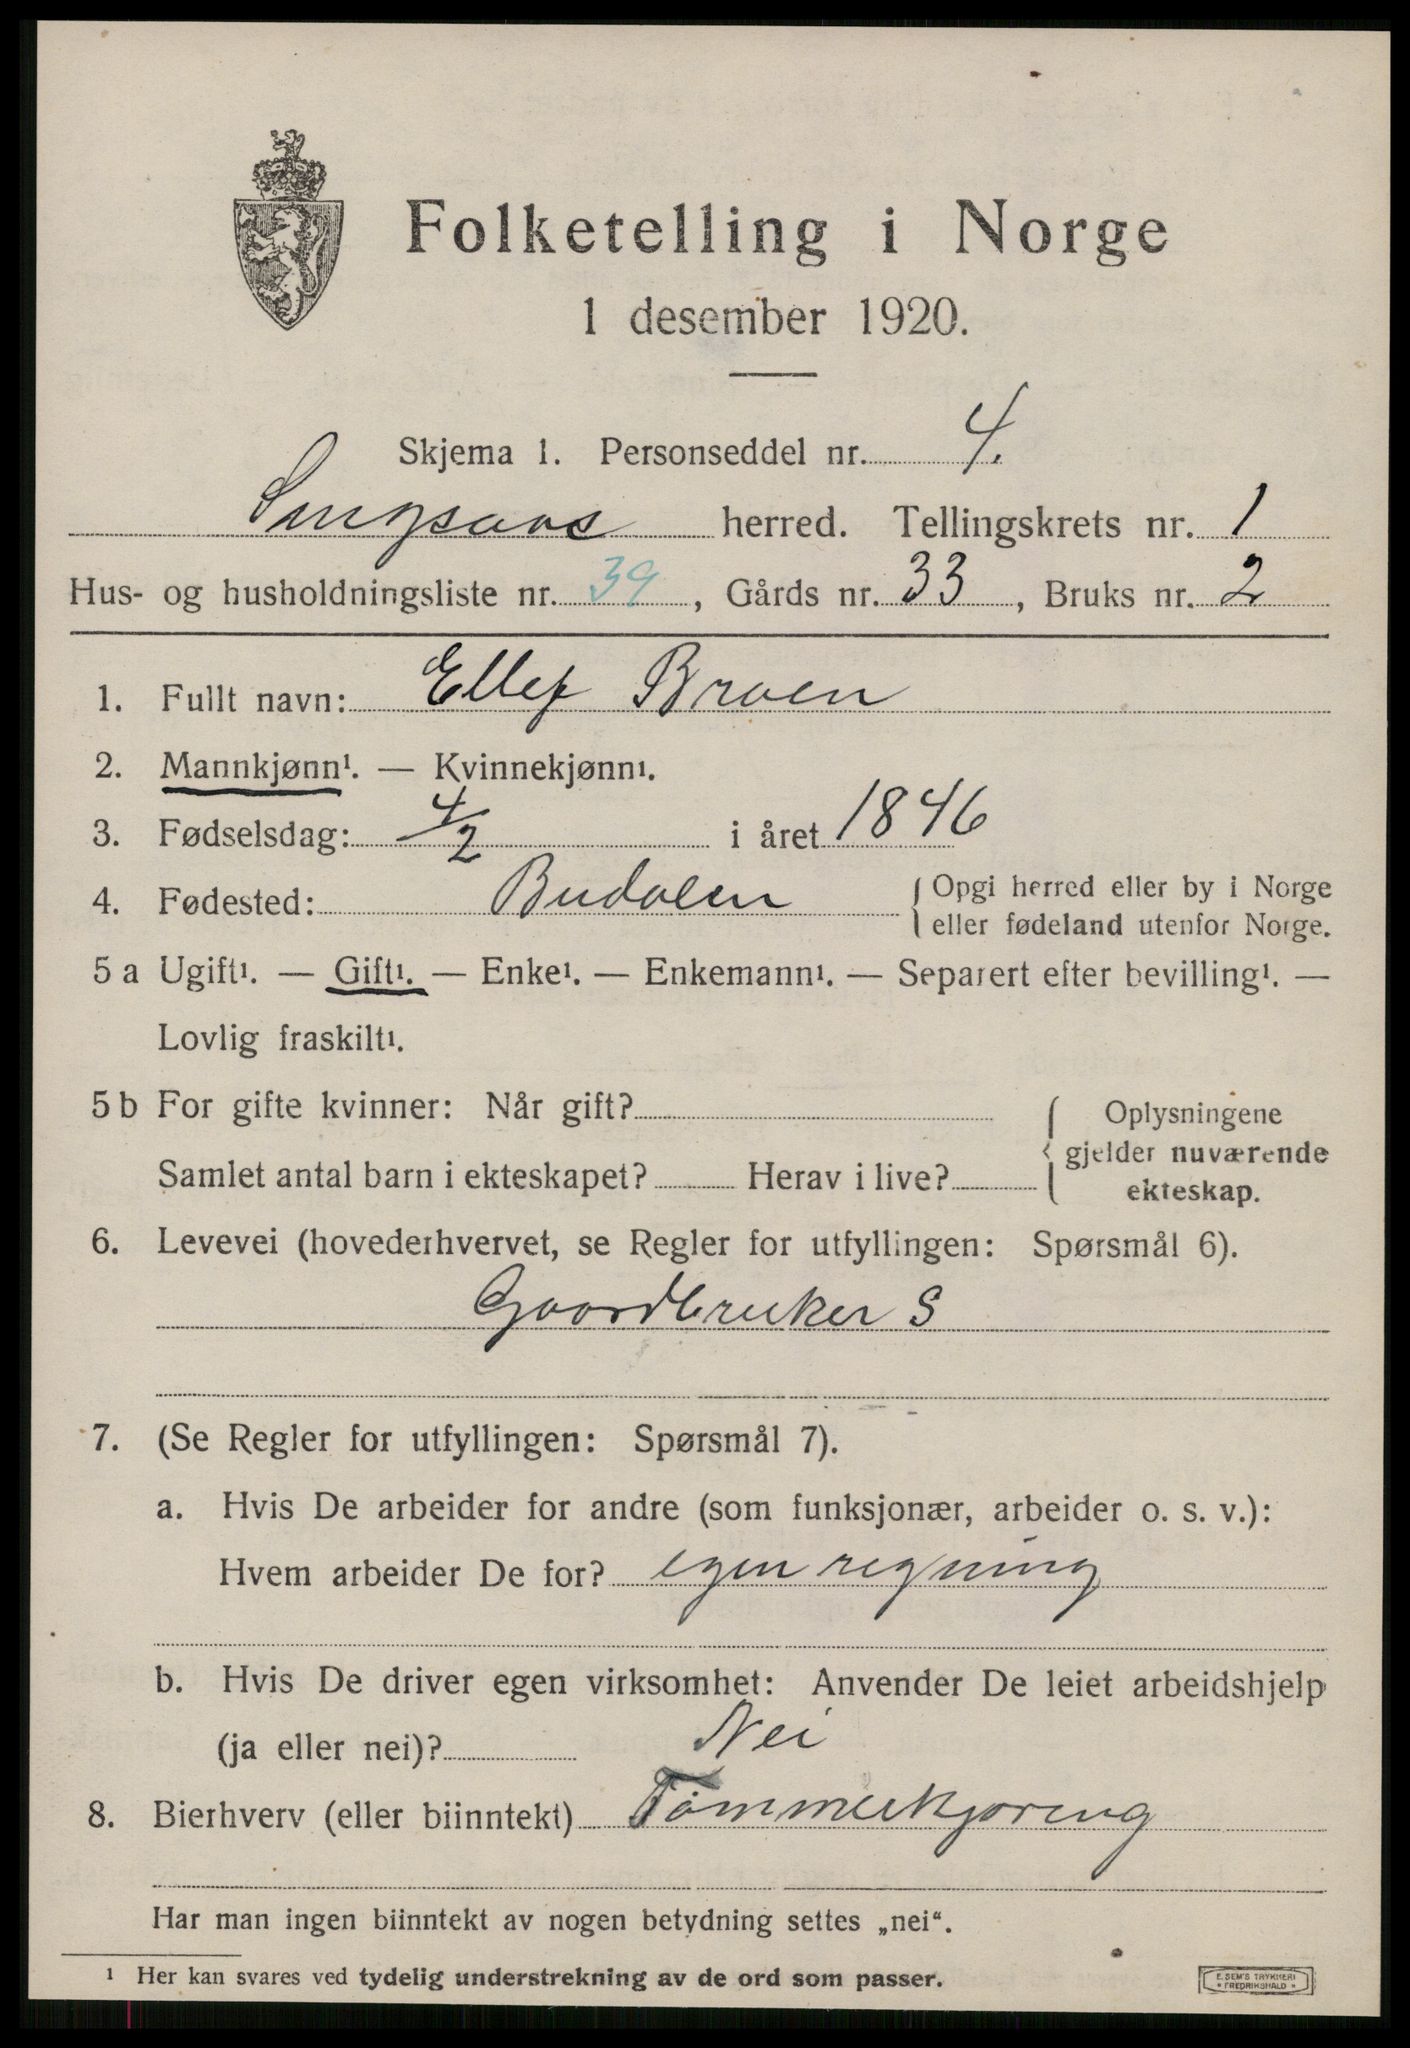 Folketelling i Norge
1 desember 1920.
Skjema 1. Personseddel nr. 4.
Singsaas herred. Tellingskrets nr. 1
Hus- og husholdningsliste nr. 39, Gårds nr. 33, Bruks nr. 2
1. Fullt navn: Ellef Broen
2. Mannkjønn¹. — Kvinnekjønn¹.
3. Fødselsdag: 4/2 i året 1846
4. Fødested: Budalen { Opgi herred eller by i Norge
eller fødeland utenfor Norge.
5 a Ugift¹. — Gift¹. — Enke¹. — Enkemann¹. — Separert efter bevilling¹. —
Lovlig fraskilt¹.
5 b For gifte kvinner: Når gift?
Samlet antal barn i ekteskapet? Herav i live?
{ Oplysningene
gjelder nuværende
ekteskap.
6. Levevei (hovederhvervet, se Regler for utfyllingen: Spørsmål 6).
Gaardbruker S
7. (Se Regler for utfyllingen: Spørsmål 7).
a. Hvis De arbeider for andre (som funksjonær, arbeider o. s. v.):
Hvem arbeider De for? egen regning
b. Hvis De driver egen virksomhet: Anvender De leiet arbeidshjelp
(ja eller nei)? Nei
8. Bierhverv (eller biinntekt) Tømmerkjøring
Har man ingen biinntekt av nogen betydning settes „nei“.
¹ Her kan svares ved tydelig understrekning av de ord som passer.
E. SEM'S TRYKKERI
* FREDRIKSHALD *